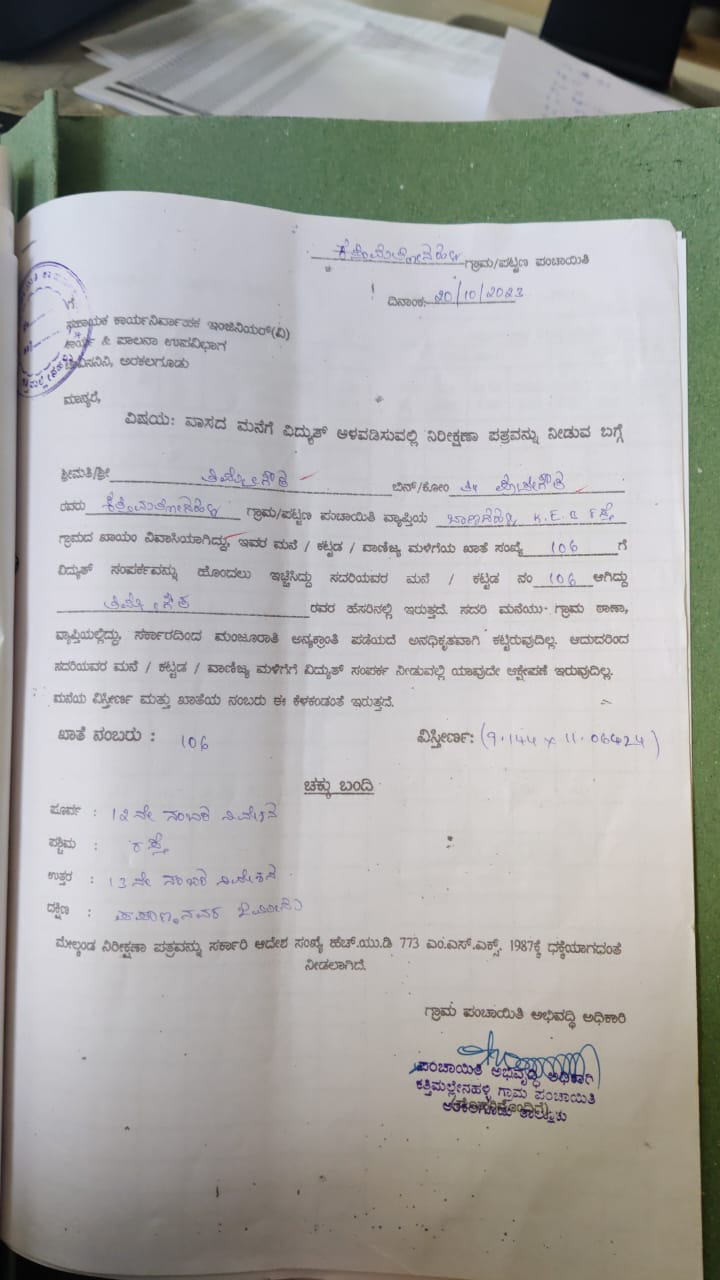 ಗ್ರಾಮ/ಪಟ್ಟಣ ಪಂಚಾಯಿತಿ
ದಿನಾಂಕ: 20/10/2023
ಗೆ,
ಸಹಾಯಕ ಕಾರ್ಯನಿರ್ವಾಹಕ ಇಂಜಿನಿಯರ್(ವಿ)
ಕಾರ್ಯ & ಪಾಲನಾ ಉಪವಿಭಾಗ
ಚಾವಿಸನಿನಿ, ಅರಕಲಗೂಡು
ಮಾನ್ಯರೆ,
ವಿಷಯ: ವಾಸದ ಮನೆಗೆ ವಿದ್ಯುತ್ ಅಳವಡಿಸುವಲ್ಲಿ ನಿರೀಕ್ಷಣಾ ಪತ್ರವನ್ನು ನೀಡುವ ಬಗ್ಗೆ
ಶ್ರೀಮತಿ/ಶ್ರೀ ಬಿನ್/ಕೋಂ
ರವರು ಗ್ರಾಮ/ಪಟ್ಟಣ ಪಂಚಾಯಿತಿ ವ್ಯಾಪ್ತಿಯ
ಗ್ರಾಮದ ಖಾಯಂ ನಿವಾಸಿಯಾಗಿದ್ದು, ಇವರ ಮನೆ / ಕಟ್ಟಡ / ವಾಣಿಜ್ಯ ಮಳಿಗೆಯ ಖಾತೆ ಸಂಖ್ಯೆ 106 ಗೆ
ವಿದ್ಯುತ್ ಸಂಪರ್ಕವನ್ನು ಹೊಂದಲು ಇಚ್ಚಿಸಿದ್ದು ಸದರಿಯವರ ಮನೆ / ಕಟ್ಟಡ ನಂ 106 ಆಗಿದ್ದು
ರವರ ಹೆಸರಿನಲ್ಲಿ ಇರುತ್ತದೆ. ಸದರಿ ಮನೆಯು ಗ್ರಾಮ ಠಾಣಾ,
ವ್ಯಾಪ್ತಿಯಲ್ಲಿದ್ದು, ಸರ್ಕಾರದಿಂದ ಮಂಜೂರಾತಿ ಅನ್ಯಕ್ರಾಂತಿ ಪಡೆಯದೆ ಅನಧಿಕೃತವಾಗಿ ಕಟ್ಟಿರುವುದಿಲ್ಲ. ಆದುದರಿಂದ
ಸದರಿಯವರ ಮನೆ / ಕಟ್ಟಡ / ವಾಣಿಜ್ಯ ಮಳಿಗೆಗೆ ವಿದ್ಯುತ್ ಸಂಪರ್ಕ ನೀಡುವಲ್ಲಿ ಯಾವುದೇ ಆಕ್ಷೇಪಣೆ ಇರುವುದಿಲ್ಲ.
ಮನೆಯ ವಿಸ್ತೀರ್ಣ ಮತ್ತು ಖಾತೆಯ ನಂಬರು ಈ ಕೆಳಕಂಡಂತೆ ಇರುತ್ತದೆ.
ಖಾತೆ ನಂಬರು : 106 ವಿಸ್ತೀರ್ಣ: (9.144 x 11.06424)
ಚಕ್ಕು ಬಂದಿ
ಪೂರ್ವ : 12ನೇ ನಂಬರ್ ನಿವೇಶನ
ಪಶ್ಚಿಮ : ರಸ್ತೆ
ಉತ್ತರ : 13ನೇ ನಂಬರ್ ನಿವೇಶನ
ದಕ್ಷಿಣ :
ಮೇಲ್ಕಂಡ ನಿರೀಕ್ಷಣಾ ಪತ್ರವನ್ನು ಸರ್ಕಾರಿ ಆದೇಶ ಸಂಖ್ಯೆ ಹೆಚ್.ಯು.ಡಿ 773 ಎಂ.ಎಸ್.ಎಕ್ಸ್. 1987ಕ್ಕೆ ಧಕ್ಕೆಯಾಗದಂತೆ
ನೀಡಲಾಗಿದೆ.
ಗ್ರಾಮ ಪಂಚಾಯಿತಿ ಅಭಿವದ್ಧಿ ಅಧಿಕಾರಿ
ಪಂಚಾಯಿತಿ ಅಭಿವೃದ್ಧಿ ಅಧಿಕಾರಿ
ಕತ್ತಿಮಲ್ಲೇನಹಳ್ಳಿ ಗ್ರಾಮ ಪಂಚಾಯಿತಿ
ಅರಕಲಗೂಡು ತಾಲ್ಲೂಕು